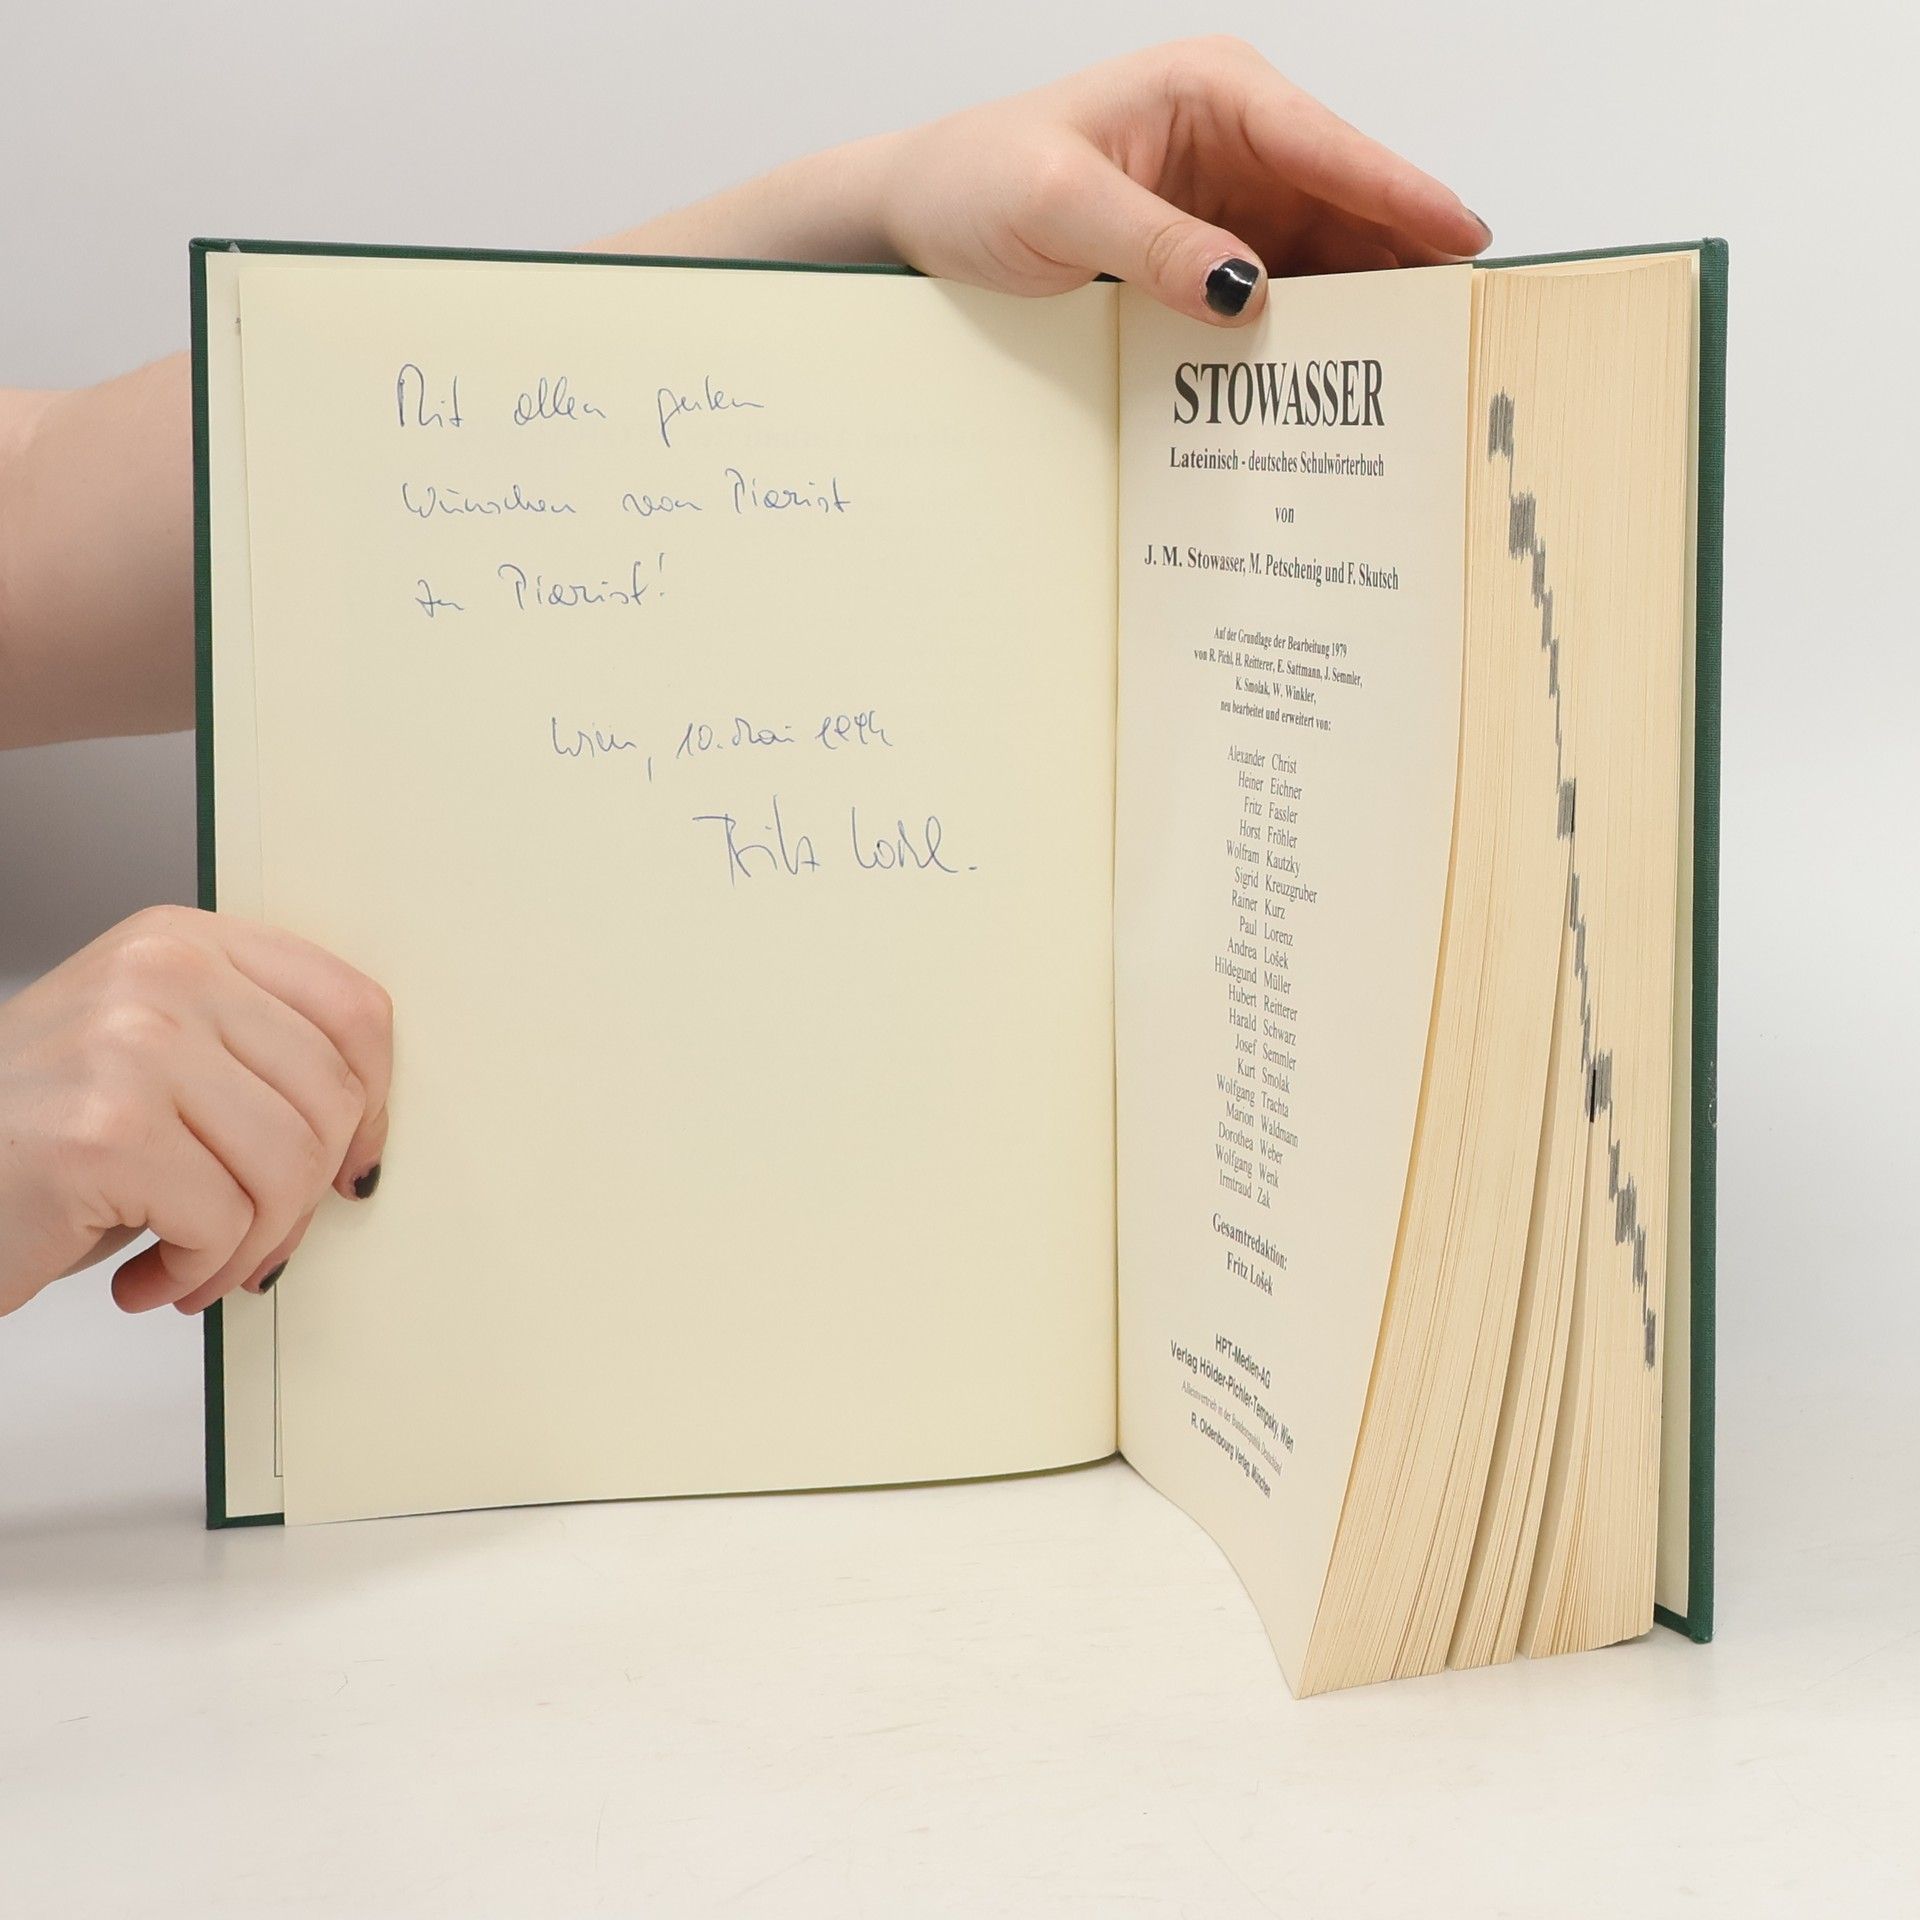 Mit allen guten
Wünschen von Piarist
zu Piarist!
Wien, 10. Mai 1994
Fritz
STOWASSER
Lateinisch - deutsches Schulwörterbuch
von
J. M. Stowasser, M. Petschenig und F. Skutsch
Auf der Grundlage der Bearbeitung 1979
von R. Pichl, H. Reitterer, E. Sattmann, J. Semmler,
K. Smolak, W. Winkler,
neu bearbeitet und erweitert von:
Alexander Christ
Heiner Eichner
Fritz Fassler
Horst Fröhler
Wolfram Kautzky
Sigrid Kreuzgruber
Rainer Kurz
Paul Lorenz
Andrea Lošek
Hildegund Müller
Hubert Reitterer
Harald Schwarz
Josef Semmler
Kurt Smolak
Wolfgang Trachta
Marion Waldmann
Dorothea Weber
Wolfgang Wenk
Irmtraud Zak
Gesamtredaktion:
Fritz Lošek
HPT-Medien-AG
Verlag Hölder-Pichler-Tempsky, Wien
Alleinvertrieb in der Bundesrepublik Deutschland
R. Oldenbourg Verlag, München